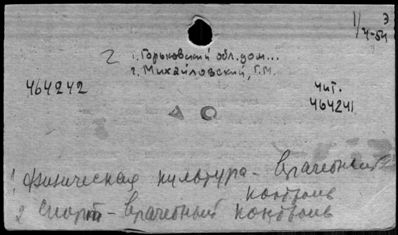 1/ Э
4-54
2 1. Горьковский обл. дом...
2. Михайловский, Г.М.
464242
Чит.
464241
1 Физическая культура - Врачебный
контроль
2 Спорт - Врачебный контроль